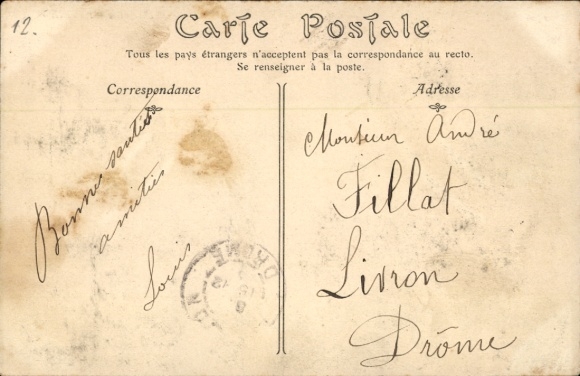 12.
Carte Postale
Tous les pays étrangers n'acceptent pas la correspondance au recto.
Se renseigner à la poste.
Correspondance
Bonne santé
amitiés
Louis
DROME
12
Adresse
Monsieur André
Fillat
Livron
Drôme